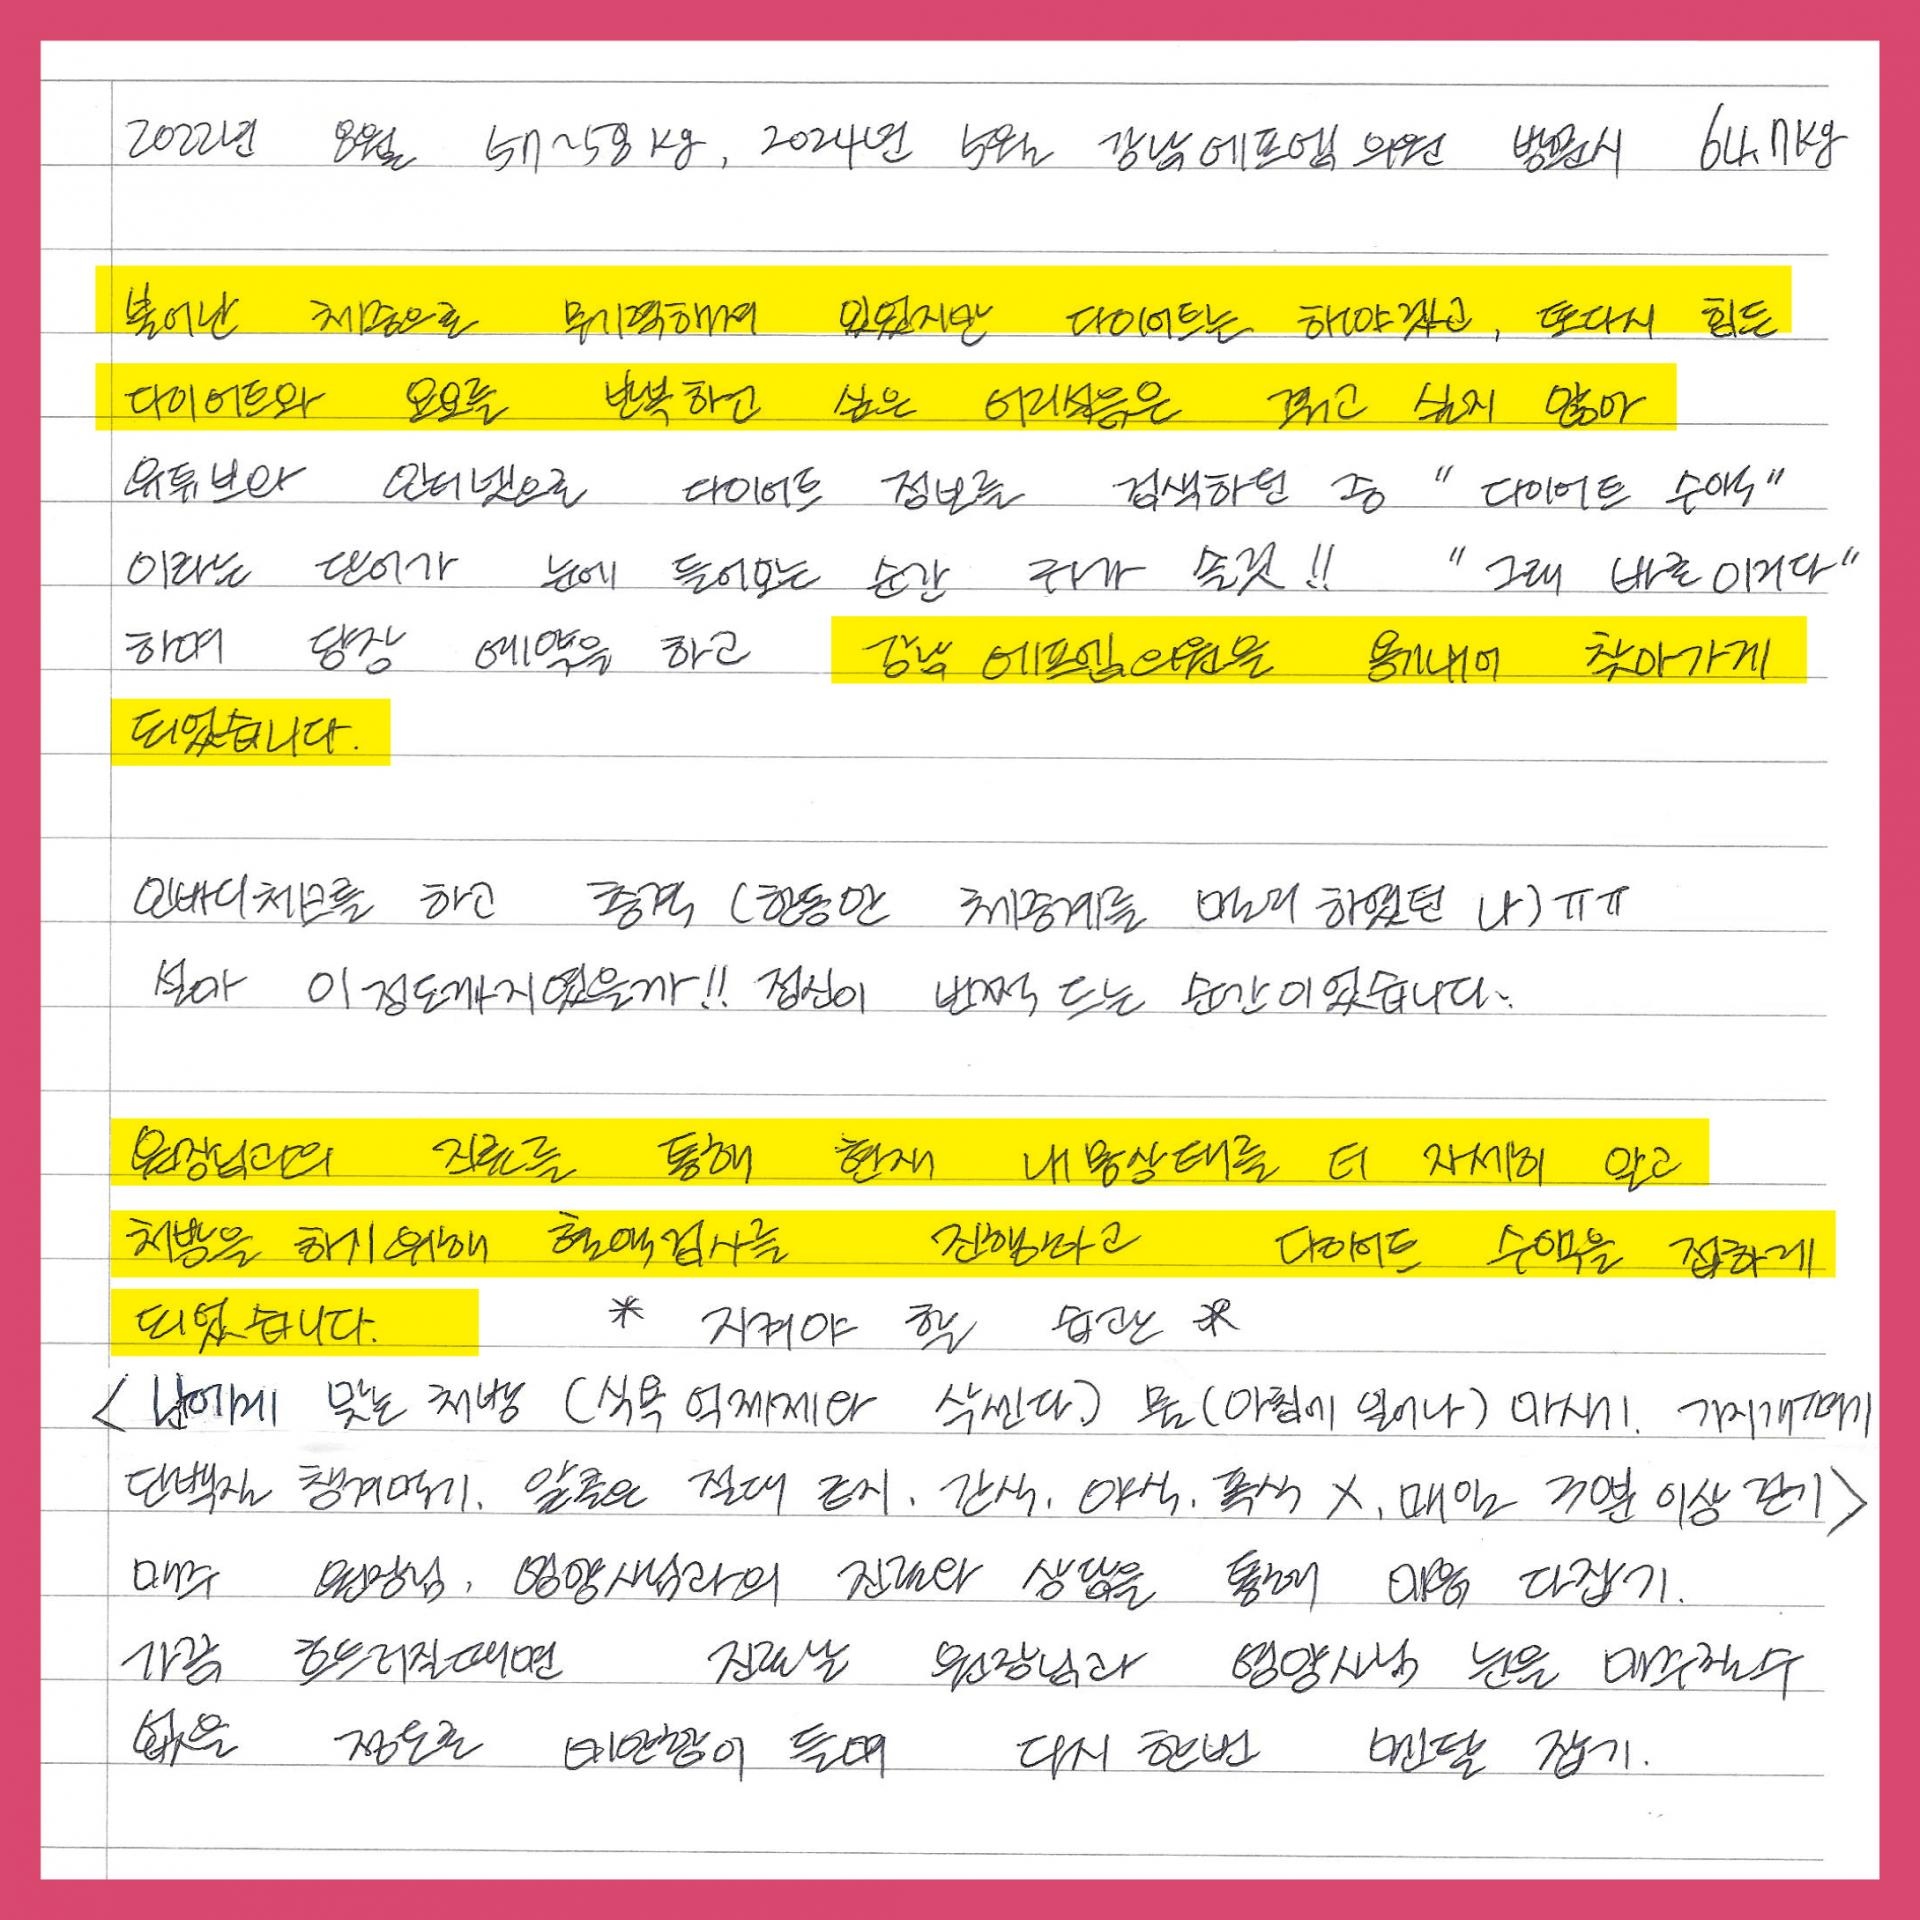 2022년 8월 57~58kg, 2024년 5월 강남에프엠의원 방문시 64.7kg
불어난 체중으로 무기력해져 있었지만 다이어트는 해야겠고, 또다시 힘든
다이어트와 요요를 반복하고 싶은 어리석음은 겪고 싶지 않아
유튜브와 인터넷으로 다이어트 정보를 검색하던 중 "다이어트 수액"
이라는 단어가 눈에 들어오는 순간 귀가 솔깃!! "그래 바로이거다"
하며 당장 예약을 하고 강남에프엠의원을 용기내어 찾아가게
되었습니다.
인바디체크를 하고 충격 (한동안 체중계를 멀리하였던 나)ㅠㅠ
설마 이정도까지였을까!! 정신이 번쩍 드는 순간이었습니다.
원장님과의 진료를 통해 현재 내몸상태를 더 자세히 알고
처방을 하기위해 혈액검사를 진행하고 다이어트 수액을 접하게
되었습니다. * 지켜야 할 습관 *
<나에게 맞는 처방 (식욕 억제제와 삭센다.) 물(아침에 일어나) 마시기. 기지개켜기
단백질 챙겨먹기. 알콜은 절대 금지. 간식. 야식. 폭식 X. 매일 30분 이상 걷기>
매주 원장님. 영양사님과의 진료와 상담을 통해 마음 다잡기.
가끔 흐트러질때면 진료날 원장님과 영양사님 눈을 마주칠수
없을 정도로 미안함이 들며 다시 한번 멘탈 잡기.